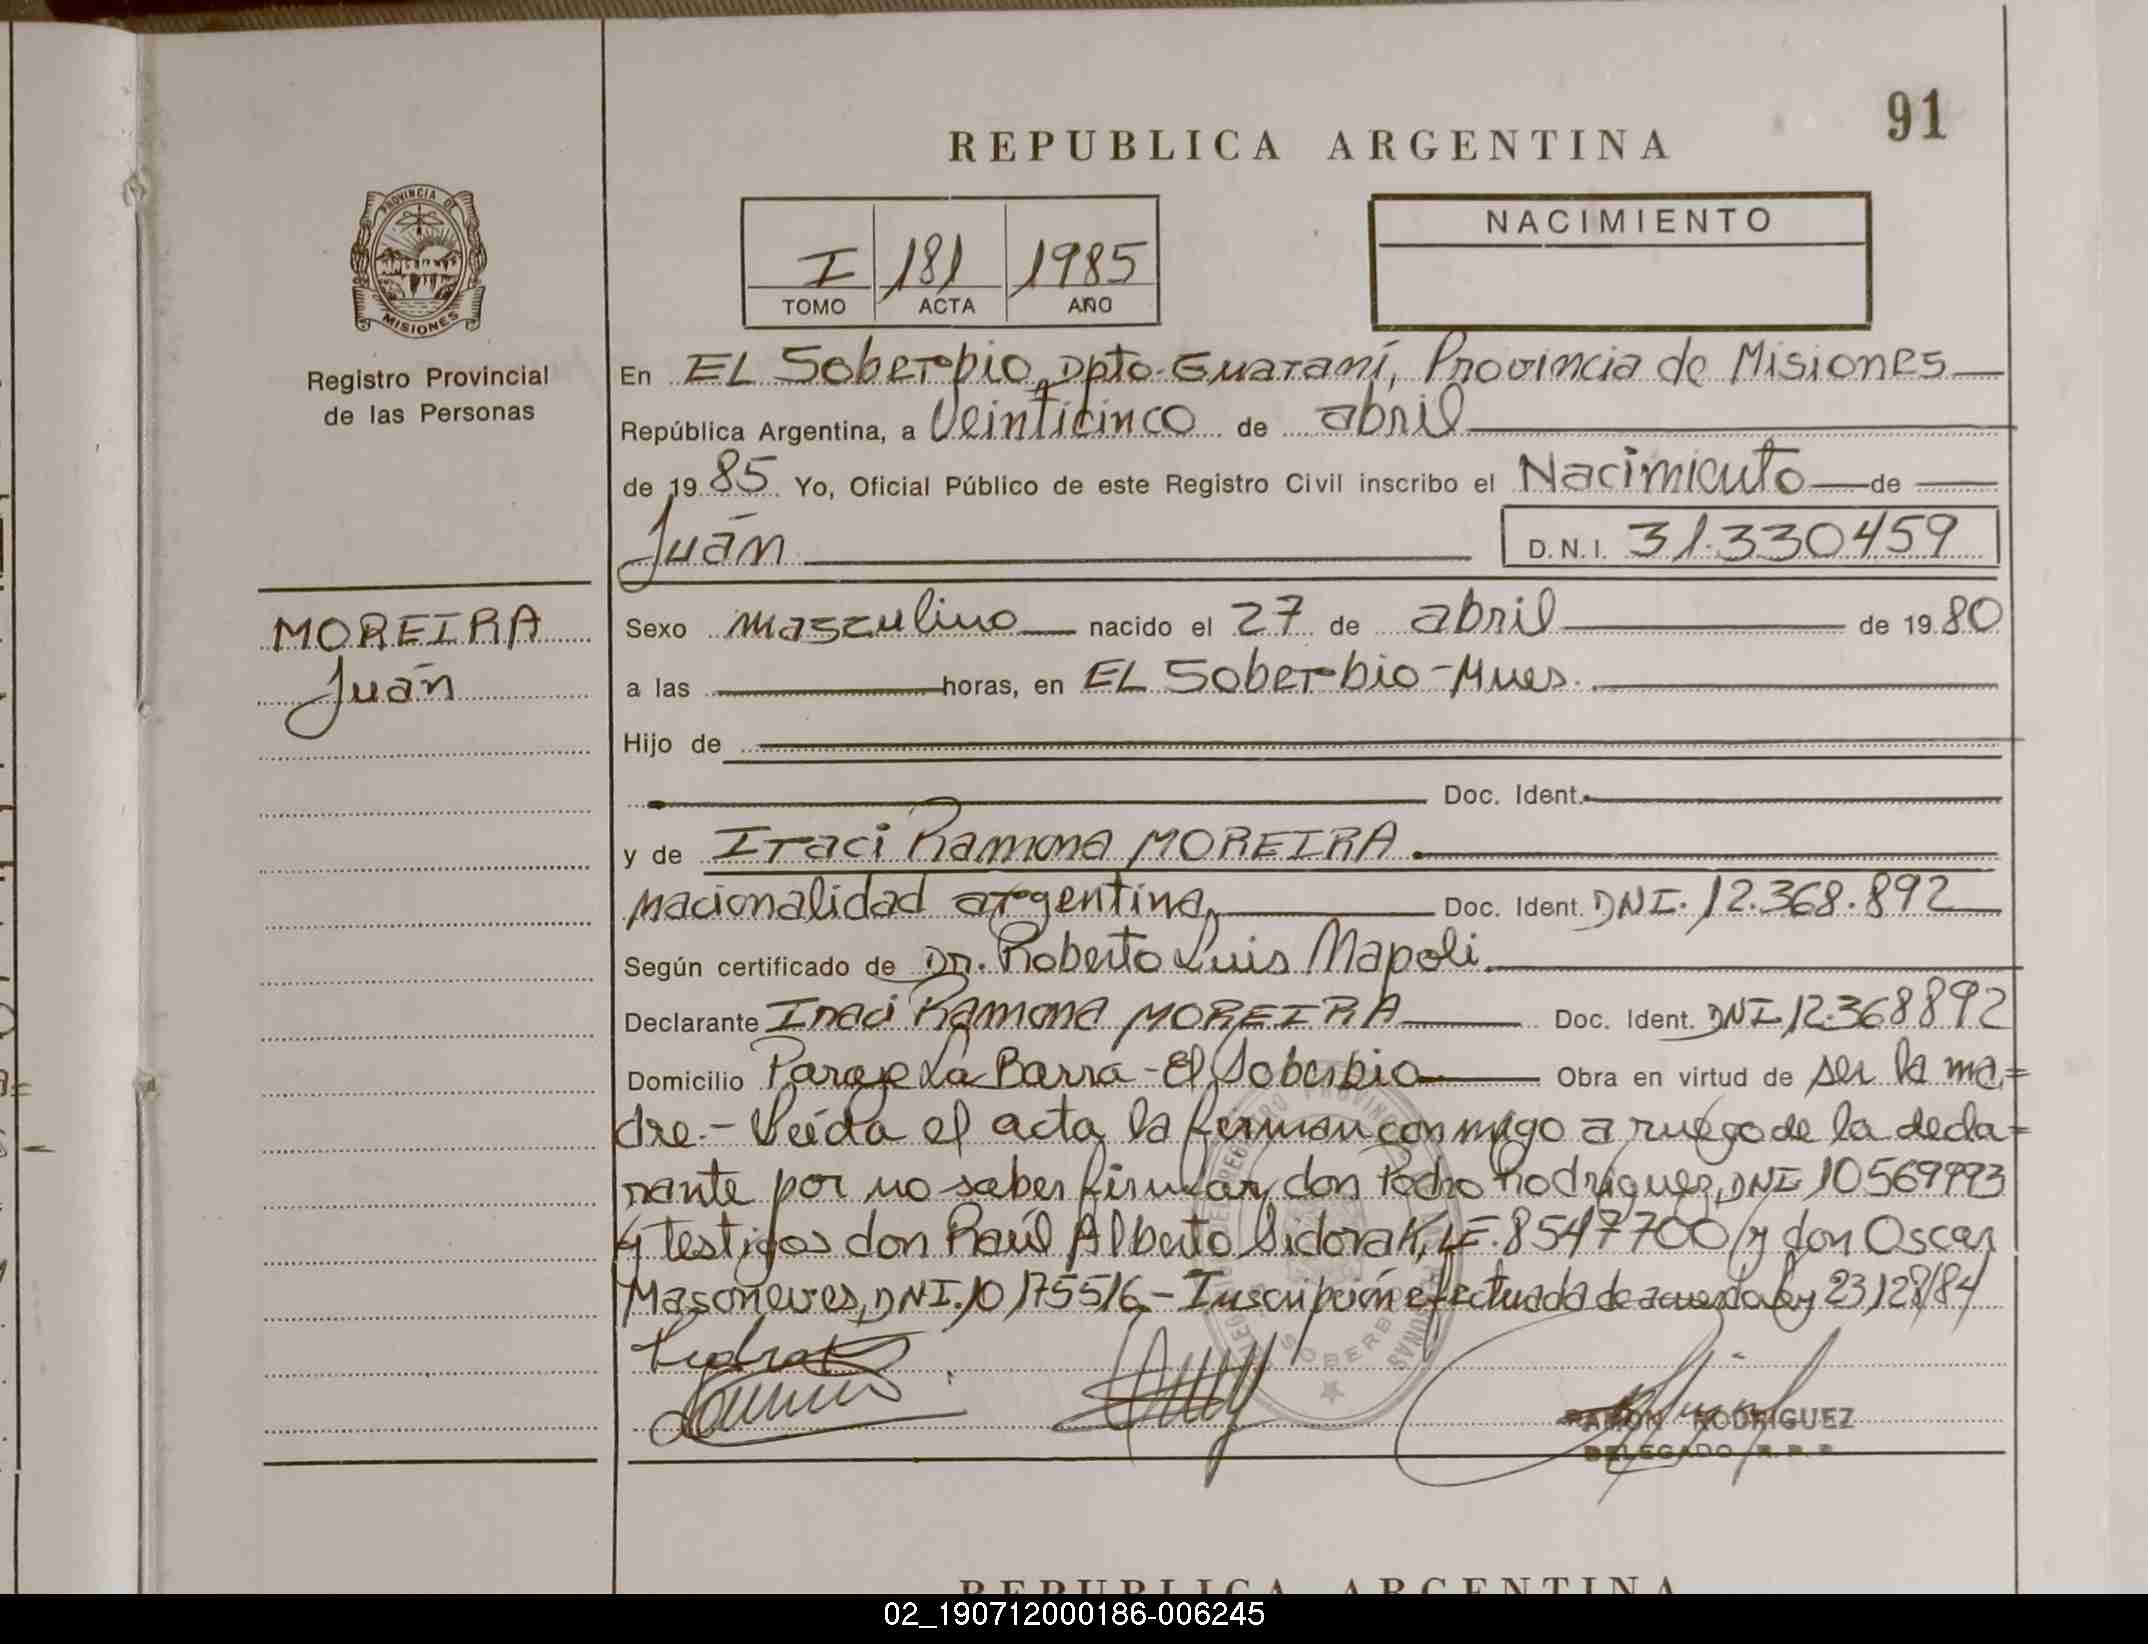 91
REPUBLICA ARGENTINA
PROVINCIA DE
MISIONES
Registro Provincial
de las Personas
I 181 1985
TOMO ACTA AÑO
NACIMIENTO
En EL Soberbio, Dpto. Guaraní, Provincia de Misiones
República Argentina, a Veinticinco de abril
de 1985 Yo, Oficial Público de este Registro Civil inscribo el Nacimiento de
Juán D.N.I. 31.330459
MOREIRA
Juán
Sexo masculino nacido el 27 de abril de 1980
a las horas, en EL Soberbio - Mnes.
Hijo de
Doc. Ident.
y de Iraci Ramona MOREIRA
nacionalidad argentina, Doc. Ident. DNI. 12.368.892
Según certificado de Dr. Roberto Luis Napoli
Declarante Iraci Ramona MOREIRA Doc. Ident. DNI 12.368892
Domicilio Paraje La Barra - El Soberbio Obra en virtud de ser la ma=
dre.- Leída el acta la firman conmigo a ruego de la decla=
rante por no saber firmar, don Pedro Rodriguez, DNI 10569993
y testigos don Raúl Alberto Sidorak, LE. 8547700 y don Oscar
Masoneves, DNI. 10175516.- Inscripción efectuada de acuerdo Ley 23128/84
RAMON RODRIGUEZ
DELEGADO R.P.P.
REPUBLICA ARGENTINA
02_190712000186-006245